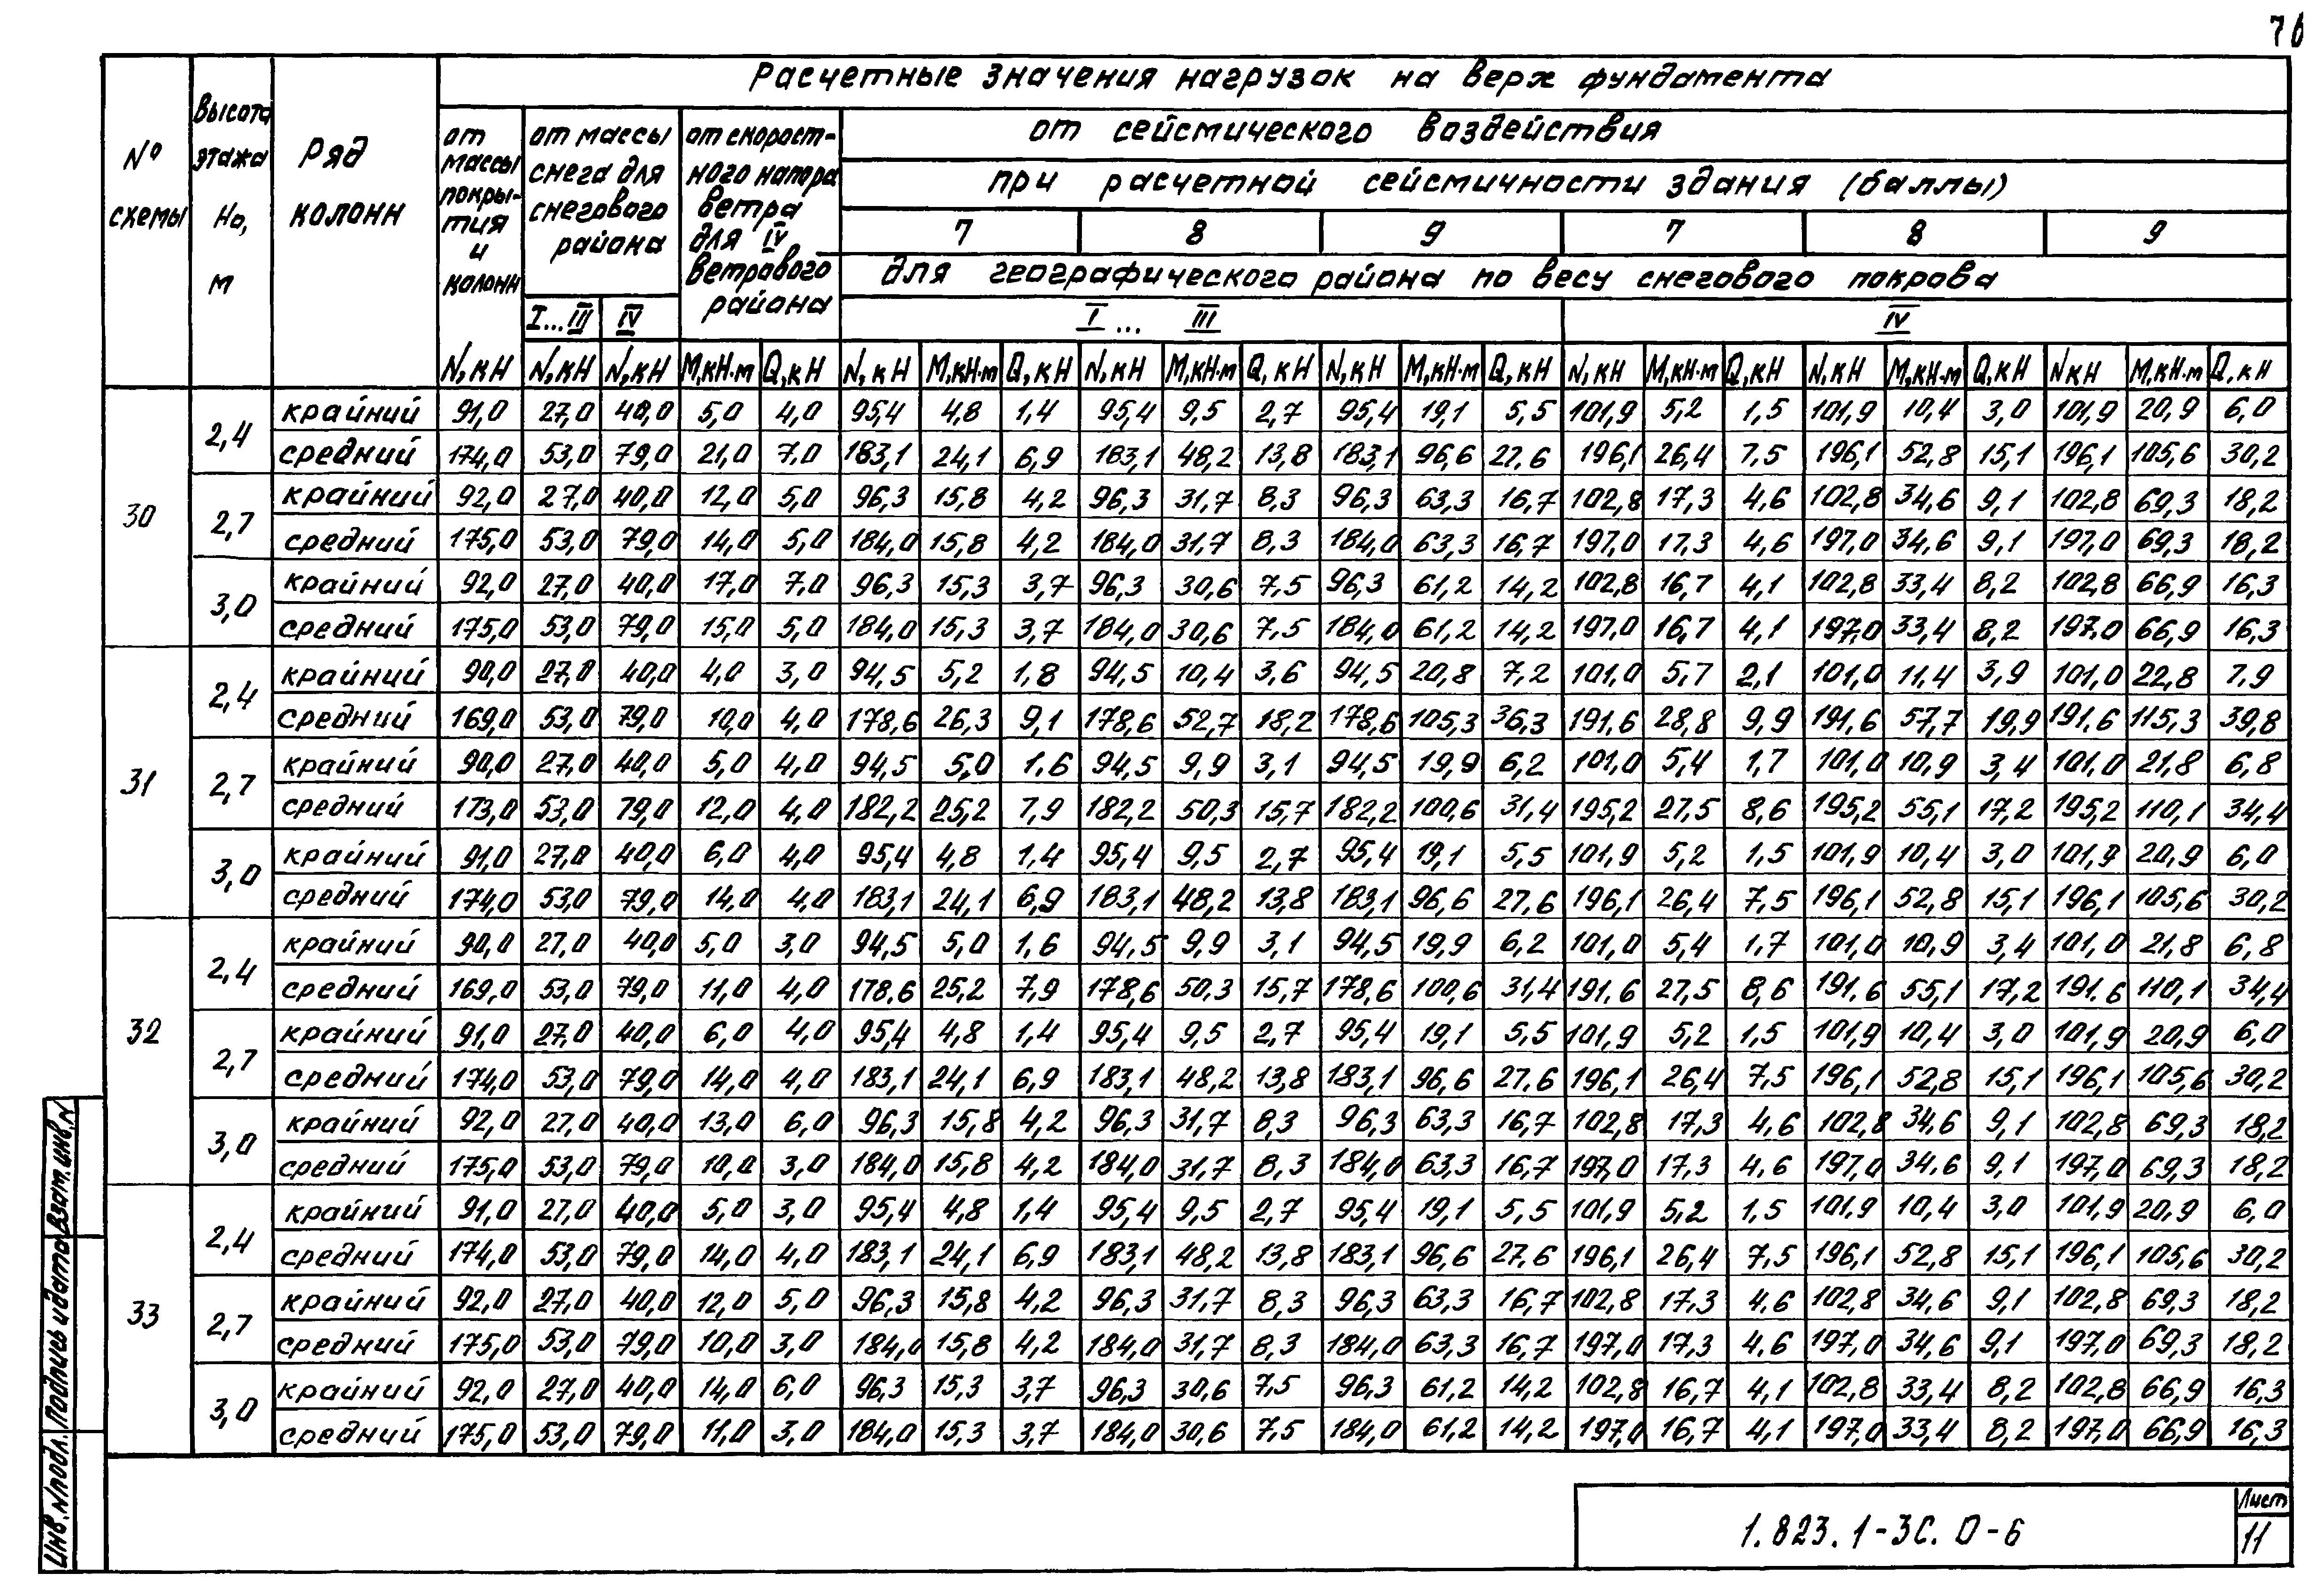 76
Расчетные значения нагрузок на верх фундамента
№ схемы
Высота этажа Но, м
Ряд колонн
от массы покрытия и колонн
от массы снега для снегового района
от скоростного напора ветра для IV ветрового района
от сейсмического воздействия
при расчетной сейсмичности здания (баллы)
7 8 9 7 8 9
для географического района по весу снегового покрова
I...III IV I ... III IV
N,кН N,кН N,кН М,кН·м Q,кН N,кН М,кН·м Q,кН N,кН М,кН·м Q,кН N,кН М,кН·м Q,кН N,кН М,кН·м Q,кН N,кН М,кН·м Q,кН N кН М,кН·м Q,кН
30 2,4 крайний 91,0 27,0 40,0 5,0 4,0 95,4 4,8 1,4 95,4 9,5 2,7 95,4 19,1 5,5 101,9 5,2 1,5 101,9 10,4 3,0 101,9 20,9 6,0
средний 174,0 53,0 79,0 21,0 7,0 183,1 24,1 6,9 183,1 48,2 13,8 183,1 96,6 27,6 196,1 26,4 7,5 196,1 52,8 15,1 196,1 105,6 30,2
2,7 крайний 92,0 27,0 40,0 12,0 5,0 96,3 15,8 4,2 96,3 31,7 8,3 96,3 63,3 16,7 102,8 17,3 4,6 102,8 34,6 9,1 102,8 69,3 18,2
средний 175,0 53,0 79,0 14,0 5,0 184,0 15,8 4,2 184,0 31,7 8,3 184,0 63,3 16,7 197,0 17,3 4,6 197,0 34,6 9,1 197,0 69,3 18,2
3,0 крайний 92,0 27,0 40,0 17,0 7,0 96,3 15,3 3,7 96,3 30,6 7,5 96,3 61,2 14,2 102,8 16,7 4,1 102,8 33,4 8,2 102,8 66,9 16,3
средний 175,0 53,0 79,0 15,0 5,0 184,0 15,3 3,7 184,0 30,6 7,5 184,0 61,2 14,2 197,0 16,7 4,1 197,0 33,4 8,2 197,0 66,9 16,3
31 2,4 крайний 90,0 27,0 40,0 4,0 3,0 94,5 5,2 1,8 94,5 10,4 3,6 94,5 20,8 7,2 101,0 5,7 2,1 101,0 11,4 3,9 101,0 22,8 7,9
средний 169,0 53,0 79,0 10,0 4,0 178,6 26,3 9,1 178,6 52,7 18,2 178,6 105,3 36,3 191,6 28,8 9,9 191,6 57,7 19,9 191,6 115,3 39,8
2,7 крайний 90,0 27,0 40,0 5,0 4,0 94,5 5,0 1,6 94,5 9,9 3,1 94,5 19,9 6,2 101,0 5,4 1,7 101,0 10,9 3,4 101,0 21,8 6,8
средний 173,0 53,0 79,0 12,0 4,0 182,2 25,2 7,9 182,2 50,3 15,7 182,2 100,6 31,4 195,2 27,5 8,6 195,2 55,1 17,2 195,2 110,1 34,4
3,0 крайний 91,0 27,0 40,0 6,0 4,0 95,4 4,8 1,4 95,4 9,5 2,7 95,4 19,1 5,5 101,9 5,2 1,5 101,9 10,4 3,0 101,9 20,9 6,0
средний 174,0 53,0 79,0 14,0 4,0 183,1 24,1 6,9 183,1 48,2 13,8 183,1 96,6 27,6 196,1 26,4 7,5 196,1 52,8 15,1 196,1 105,6 30,2
32 2,4 крайний 90,0 27,0 40,0 5,0 3,0 94,5 5,0 1,6 94,5 9,9 3,1 94,5 19,9 6,2 101,0 5,4 1,7 101,0 10,9 3,4 101,0 21,8 6,8
средний 169,0 53,0 79,0 11,0 4,0 178,6 25,2 7,9 178,6 50,3 15,7 178,6 100,6 31,4 191,6 27,5 8,6 191,6 55,1 17,2 191,6 110,1 34,4
2,7 крайний 91,0 27,0 40,0 6,0 4,0 95,4 4,8 1,4 95,4 9,5 2,7 95,4 19,1 5,5 101,9 5,2 1,5 101,9 10,4 3,0 101,9 20,9 6,0
средний 174,0 53,0 79,0 14,0 4,0 183,1 24,1 6,9 183,1 48,2 13,8 183,1 96,6 27,6 196,1 26,4 7,5 196,1 52,8 15,1 196,1 105,6 30,2
3,0 крайний 92,0 27,0 40,0 13,0 6,0 96,3 15,8 4,2 96,3 31,7 8,3 96,3 63,3 16,7 102,8 17,3 4,6 102,8 34,6 9,1 102,8 69,3 18,2
средний 175,0 53,0 79,0 10,0 3,0 184,0 15,8 4,2 184,0 31,7 8,3 184,0 63,3 16,7 197,0 17,3 4,6 197,0 34,6 9,1 197,0 69,3 18,2
33 2,4 крайний 91,0 27,0 40,0 5,0 3,0 95,4 4,8 1,4 95,4 9,5 2,7 95,4 19,1 5,5 101,9 5,2 1,5 101,9 10,4 3,0 101,9 20,9 6,0
средний 174,0 53,0 79,0 14,0 4,0 183,1 24,1 6,9 183,1 48,2 13,8 183,1 96,6 27,6 196,1 26,4 7,5 196,1 52,8 15,1 196,1 105,6 30,2
2,7 крайний 92,0 27,0 40,0 12,0 5,0 96,3 15,8 4,2 96,3 31,7 8,3 96,3 63,3 16,7 102,8 17,3 4,6 102,8 34,6 9,1 102,8 69,3 18,2
средний 175,0 53,0 79,0 10,0 3,0 184,0 15,8 4,2 184,0 31,7 8,3 184,0 63,3 16,7 197,0 17,3 4,6 197,0 34,6 9,1 197,0 69,3 18,2
3,0 крайний 92,0 27,0 40,0 14,0 6,0 96,3 15,3 3,7 96,3 30,6 7,5 96,3 61,2 14,2 102,8 16,7 4,1 102,8 33,4 8,2 102,8 66,9 16,3
средний 175,0 53,0 79,0 11,0 3,0 184,0 15,3 3,7 184,0 30,6 7,5 184,0 61,2 14,2 197,0 16,7 4,1 197,0 33,4 8,2 197,0 66,9 16,3
Инв.N подл. Подпись и дата Взам.инв.N
1.823.1-3С. 0-6
Лист
11